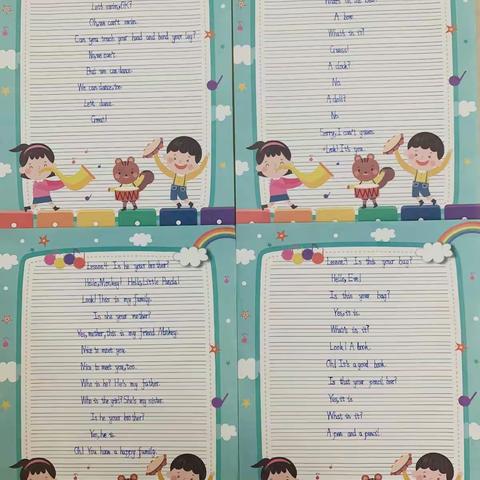 Let's swim, OK?
Oh, we can't swim.
Can you touch your head and bend your leg?
No, we can't.
But we can dance.
We can dance, too.
Let's dance.
Great!
What's in the box?
A box.
What's in it?
Guess!
A clock?
No.
A doll?
No.
Sorry, I can't guess.
Look! It's you.
Lesson7 Is he your brother?
Hello, Monkey! Hello, Little Panda!
Look! This is my family.
Is she your mother?
Yes, mother, this is my friend Monkey.
Nice to meet you.
Nice to meet you, too.
Who is he? He's my father.
Who is the girl? She's my sister.
Is he your brother?
Yes, he is.
Oh! You have a happy family.
Lesson7 Is this your bag?
Hello, Eve!
Is this your bag?
Yes, it is.
What's in it?
Look! A book.
Oh! It's a good book.
Is that your pencil box?
Yes, it is.
What is it?
A pen and a pencil.